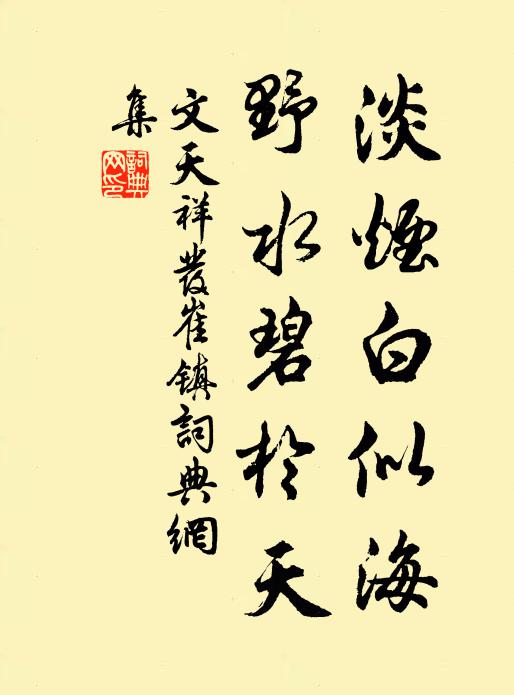 淡煙白似海
野水碧於天
文天祥發崔鎮詞典網
集
詞典網印